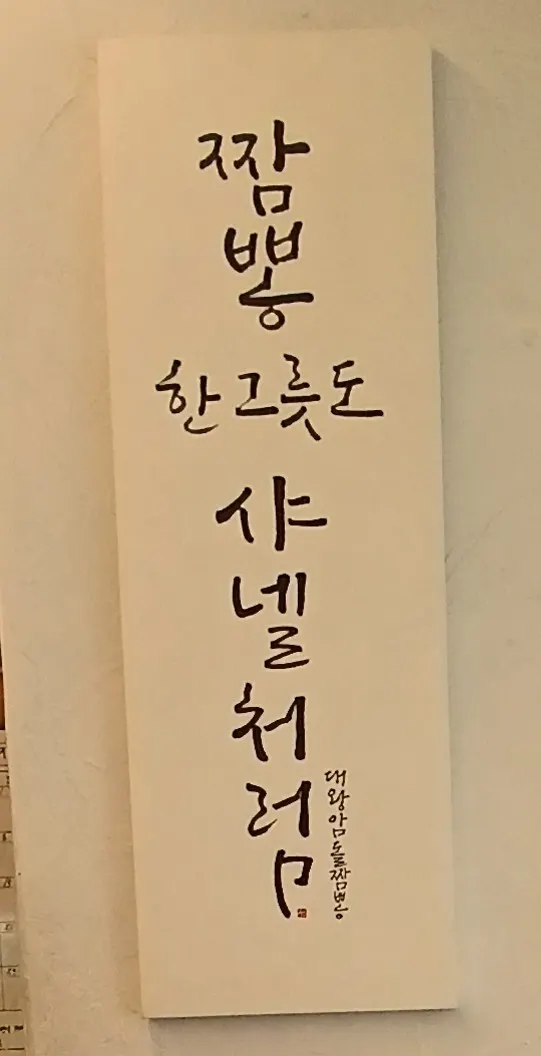 짬
뽕
한그릇도
샤
넬
처
럼
대왕암돌짬뽕